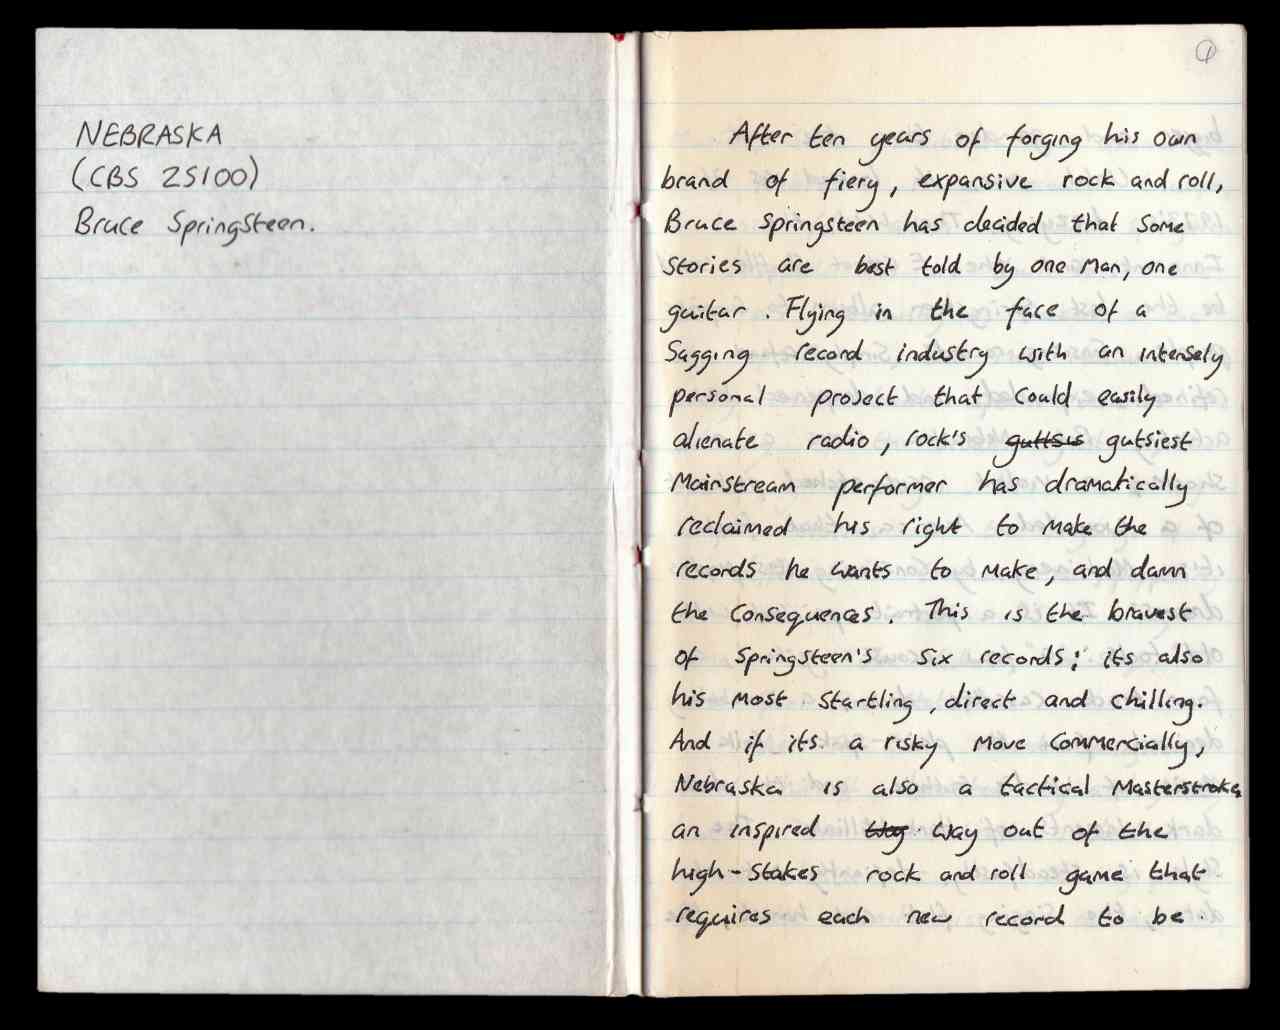 NEBRASKA
(CBS 25100)
Bruce Springsteen.
1
After ten years of forging his own
brand of fiery, expansive rock and roll,
Bruce Springsteen has decided that some
stories are best told by one man, one
guitar. Flying in the face of a
sagging record industry with an intensely
personal project that could easily
alienate radio, rock's guttsis gutsiest
mainstream performer has dramatically
reclaimed his right to make the
records he wants to make, and damn
the consequences. This is the bravest
of Springsteen's six records; its also
his most startling, direct and chilling.
And if its a risky move commercially,
Nebraska is also a tactical masterstroke
an inspired way out of the
high-stakes rock and roll game that
requires each new record to be